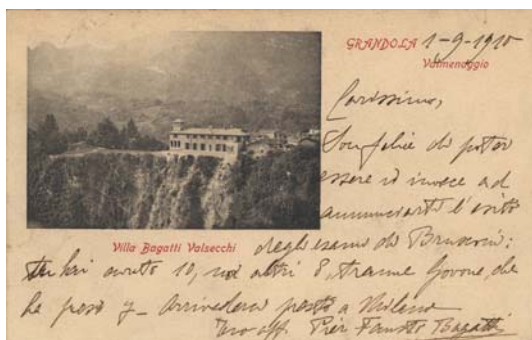 GRANDOLA 1-9-1910
Valmenaggio
Carissimo,
Son felice di poter
essere io invece ad
annunciarti l'esito
Villa Bagatti Valsecchi
degli esami di Bruserin:
tu hai avuto 10, noi altri 8, tranne Govone, che
ha preso 7 – Arrivederci presto a Milano
tuo aff. Pier Fausto Bagatti